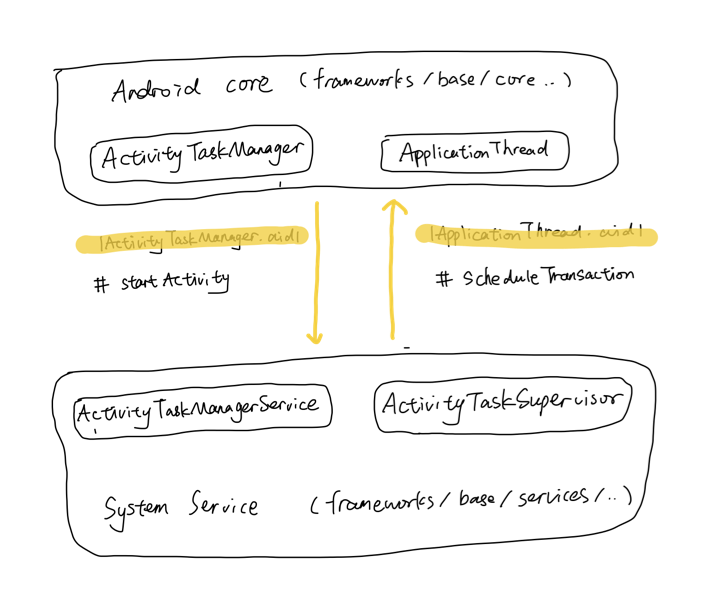 Android core (frameworks/base/core..)
ActivityTaskManager
ApplicationThread
IActivityTaskManager.aidl
IApplicationThread.aidl
# startActivity
# scheduleTransaction
ActivityTaskManagerService
ActivityTaskSupervisor
System Service (frameworks/base/services/..)